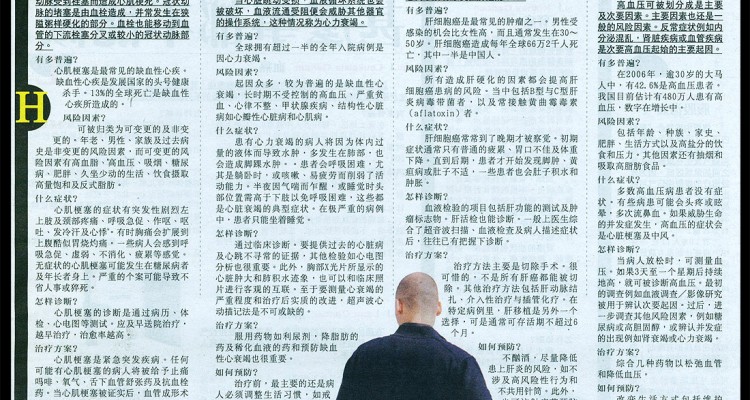 动脉受到栓塞而造成心肌梗死。冠状动
脉的堵塞是由血栓造成，并常发生在狭
窄粥样硬化的部分。血栓也能移动到血
管的下流栓塞分叉或较小的冠状动脉部
分。
有多普遍？
心肌梗塞是最常见的缺血性心疾。
缺血性心疾是发展国家的头号健康
杀手。13%的全球死亡是缺血性
心疾所造成的。
风险因素？
可被归类为可变更的及非变
更的。年老、男性、家族及过去病
史是非变更的风险因素，而可变更的风
险因素有高血脂、高血压、吸烟、糖尿
病、肥胖、久坐少动的生活、饮食摄取
高量饱和及反式脂肪。
什么症状？
心肌梗塞的症状有突发性剧烈左
上肢及颈部疼痛、呼吸急促、作呕、呕
吐、发冷汗及心悸。有时胸痛会扩展到
上腹酷似胃烧灼痛。一些病人会感到呼
吸急促、虚弱、不消化、疲累等感觉。
无症状的心肌梗塞可能发生在糖尿病者
及年长者身上。严重的个案可能导致不
省人事或猝死。
怎样诊断？
心肌梗塞的诊断是通过病历、体
检、心电图等测试。应及早送院治疗，
越早治疗，治愈率越高。
治疗方案？
心肌梗塞是紧急突发疾病，任何
可能有心肌梗塞的病人将被给予止痛
吗啡、氧气、舌下血管舒张药及抗血栓
药，当心肌梗塞被证实后，血管成形术
H
当心脏跳动变弱，血液循环系统也会
被破坏，血液流通受阻便会威胁其他器官
的操作系统，这种情况称为心力衰竭。
有多普遍？
全球拥有超过一半的全年入院病例是
因心力衰竭。
风险因素？
起因众多，较为普遍的是缺血性心
衰竭。长时期不受控制的高血压、严重贫
血、心律不整、甲状腺疾病、结构性心脏
病如心瓣性心脏病和心肌病。
什么症状？
患有心力衰竭的病人将因为体内过
量的液体而导致水肿，多发生在肺部，也
会造成脚踝水肿。患者会呼吸困难，尤
其是躺卧时，或咳嗽、易疲劳而削弱了活
动能力。半夜因气喘而作醒，或睡觉时头
部位置需高于下肢以免呼吸困难，这些都
是心脏衰竭的典型症状。在极严重的病例
中，患者只能坐着睡觉。
怎样诊断？
通过临床诊断，要提供过去的心脏病
及心跳不寻常的证据，其他检验如心电图
分析也很重要。此外，胸部X光片所显示的
心脏肿大和肺积水迹象，也可以和临床照
片进行客观的互联。至于要测量心衰竭的
严重程度和治疗后实质的改进，超声波心
动描记法是不可或缺的。
治疗方案？
服用药物如利尿剂、降脂肪的
药及稀化血液的药和预防缺血
性心衰竭也很重要。
如何预防？
治疗前，最主要的还是病
人必须调整生活习惯，如戒
有多普遍？
肝细胞癌是最常见的肿瘤之一。男性受
感染的机会比女性高，而且通常发生在30～
50岁。肝细胞癌造成每年全球66万2千人死
亡，其中一半是中国人。
风险因素？
所有造成肝硬化的因素都会提高肝
细胞癌患病的风险，当中包括B型与C型肝
炎病毒带菌者，以及常接触黄曲霉毒素
（aflatoxin）者。
什么症状？
肝细胞癌常常到了晚期才被察觉。初期
症状通常只有普通的疲累、胃口不佳及体重
下降。直到后期，患者才开始发现脚肿、黄
疸病或肚子不适，一些患者也会肚子积水和
肿胀。
怎样诊断？
血液检验的项目包括肝功能的测试及肿
瘤标志物，肝活检也能诊断。一般上医生综
合了超音波扫描、血液检查及病人描述症状
后，往往已有把握下诊断。
治疗方案？
治疗方法主要是切除手术，很
可惜的，不是所有肝癌都能被切
除，其他治疗方法包括肝动脉结
扎、介入性治疗与插管化疗。在
特定病例里，肝移植是另外一个
选择，可是通常可存活期不超过6
个月。
如何预防？
不酗酒，尽量降低
患上肝炎的风险，如不
涉及高风险性行为和
不共用针筒。此外，
高血压可被划分成是主要
及次要因素。主要因素也还是一
般的风险因素。反常症状例如内
分泌混乱，肾脏疾病或血管疾病
是次要高血压起始的主要起因。
有多普遍？
在2006年，逾30岁的大马
人中，有42.6%是高血压患者。
我国目前估计有480万人患有高
血压，数字在增长中。
风险因素？
包括年龄、种族、家史、
肥胖、生活方式以及高盐分的饮
食和压力。其他因素还有抽烟和
吸取高脂肪食品。
什么症状？
多数高血压病患者没有症
状。有些病患可能会头疼或眩
晕，多次流鼻血。如果威胁生命
的并发症发生，高血压的症状会
是心肌梗塞及中风。
怎样诊断？
当病人放松时，可测量血
压。如果3天至一个星期后持续
地高，就可被诊断高血压。最初
的调查例如血液调查／影像研究
被用于辨认次要起因。过后，进
一步调查其他风险因素，例如糖
尿病或高胆固醇，或辨认并发症
的出现例如肾衰竭或心力衰竭。
治疗方案？
综合几种药物以松弛血管
和降低血压。
如何预防？
改变生活方式包括维护